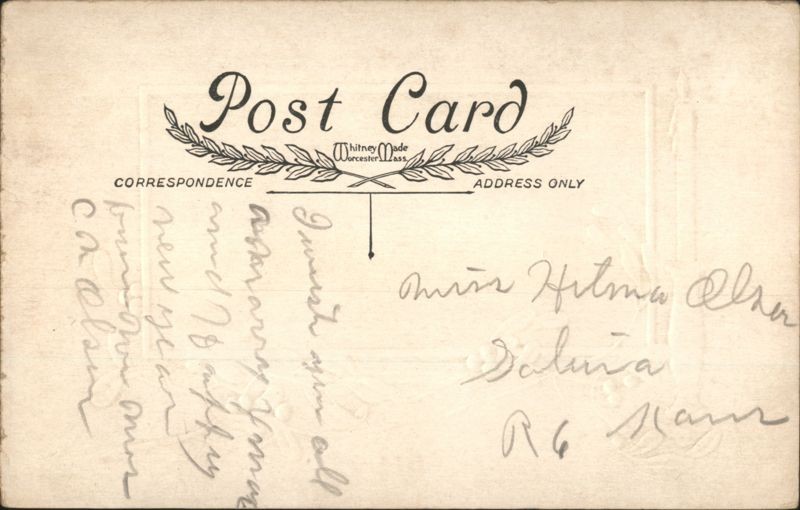 Post Card
Whitney Made
Worcester Mass.
CORRESPONDENCE
ADDRESS ONLY
I wish you all
a mrarry Xmas
and Happy
new year
from mrs
C A Olson
Miss Hilma Olson
Salina
R 6 Kans